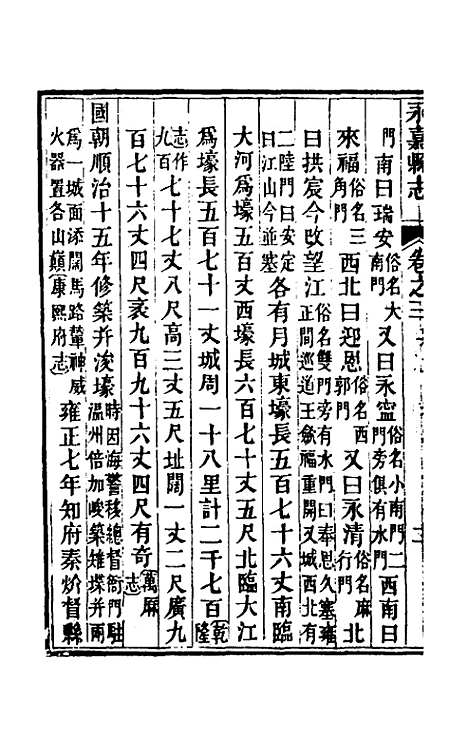 永嘉縣志 卷之三
門南曰瑞安俗名大南門又曰永寧俗名小南門二門旁俱有水門西南曰
來福俗名三角門西北曰迎恩俗名西郭門又曰永清俗名麻行門北
曰拱宸今改望江俗名雙門旁有水門曰奉恩久塞雍正間巡道王斂福重開又城西北有
二陸門曰安定曰江山今並塞各有月城東壕長五百七十六丈南臨
大河爲壕五百丈西壕長六百七十丈五尺北臨大江
爲壕長五百七十一丈城周一十八里計二千七百乾隆
志作九百七十七丈八尺高三丈五尺址闊一丈二尺廣九
百七十六丈四尺袤九百九十六丈四尺有奇萬曆志
國朝順治十五年修築并浚壕時因海警移總督衙門駐溫州倍加峻築雉堞并兩
爲一城面添闊馬路輦神威火器置各山巔康熙府志雍正七年知府秦炌督縣